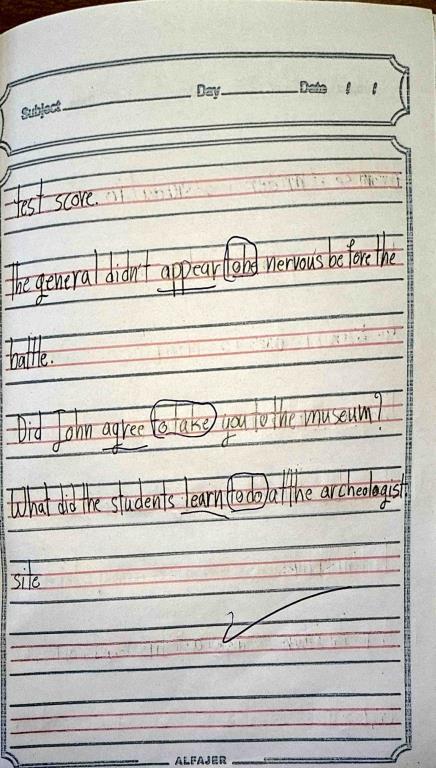 Subject Day Date / /
test score.
The general didn't appear to be nervous before the
battle.
Did John agree to take you to the museum?
What did the students learn to do at the archeologist
site
ALFAJER